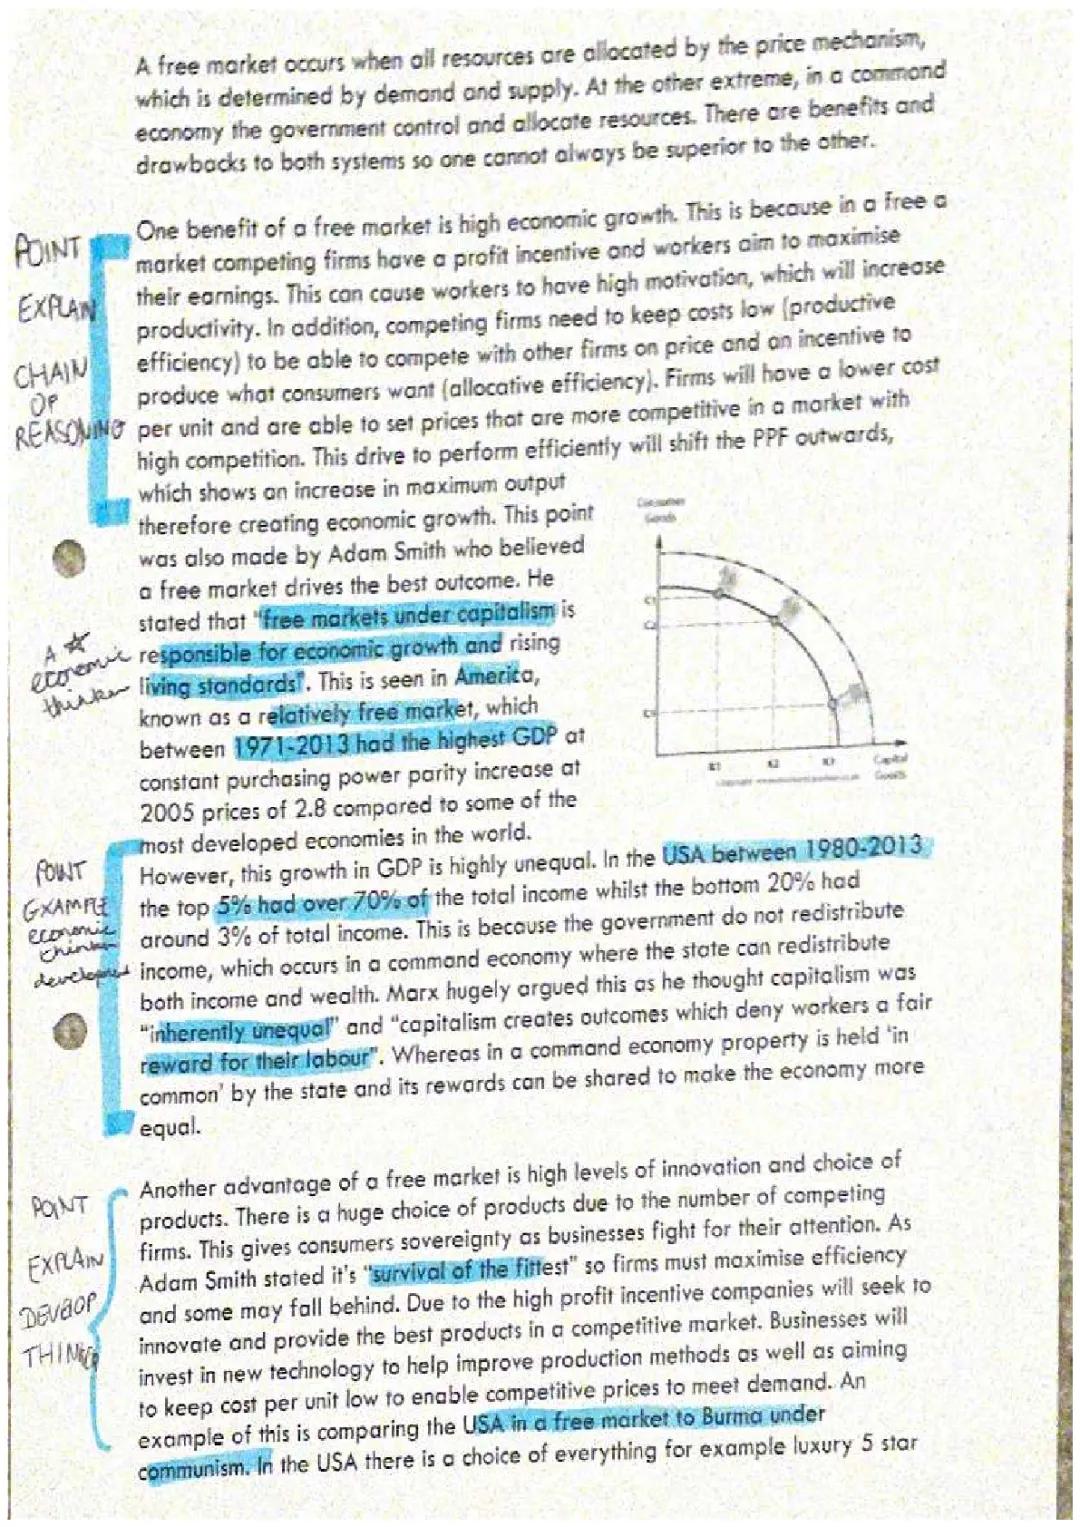 A free market occurs when all resources are allocated by the price mechanism,
which is determined by demand and supply. At the other extreme, in a command
economy the government control and allocate resources. There are benefits and
drawbacks to both systems so one cannot always be superior to the other.
One benefit of a free market is high economic growth. This is because in a free a
market competing firms have a profit incentive and workers aim to maximise
their earnings. This can cause workers to have high motivation, which will increase
productivity. In addition, competing firms need to keep costs low (productive
efficiency) to be able to compete with other firms on price and an incentive to
produce what consumers want (allocative efficiency). Firms will have a lower cost
per unit and are able to set prices that are more competitive in a market with
high competition. This drive to perform efficiently will shift the PPF outwards,
which shows an increase in maximum output
therefore creating economic growth. This point
was also made by Adam Smith who believed
a free market drives the best outcome. He
stated that "free markets under capitalism is
responsible for economic growth and rising
living standards". This is seen in America,
known as a relatively free market, which
between 1971-2013 had the highest GDP at
constant purchasing power parity increase at
2005 prices of 2.8 compared to some of the
most developed economies in the world.
However, this growth in GDP is highly unequal. In the USA between 1980-2013
the top 5% had over 70% of the total income whilst the bottom 20% had
around 3% of total income. This is because the government do not redistribute
income, which occurs in a command economy where the state can redistribute
both income and wealth. Marx hugely argued this as he thought capitalism was
"inherently unequal" and "capitalism creates outcomes which deny workers a fair
reward for their labour". Whereas in a command economy property is held 'in
common' by the state and its rewards can be shared to make the economy more
equal.
Another advantage of a free market is high levels of innovation and choice of
products. There is a huge choice of products due to the number of competing
firms. This gives consumers sovereignty as businesses fight for their attention. As
Adam Smith stated it's "survival of the fittest" so firms must maximise efficiency
and some may fall behind. Due to the high profit incentive companies will seek to
innovate and provide the best products in a competitive market. Businesses will
invest in new technology to help improve production methods as well as aiming
to keep cost per unit low to enable competitive prices to meet demand. An
example of this is comparing the USA in a free market to Burma under
communism. In the USA there is a choice of everything for example luxury 5 star
POINT
EXPLAIN
CHAIN
OF
REASONING
A ☆
economic
thinker
POINT
EXAMPLE
economic
thinker
development
POINT
EXPLAIN
DEVELOP
Consumer
Goods
Capital
Goods